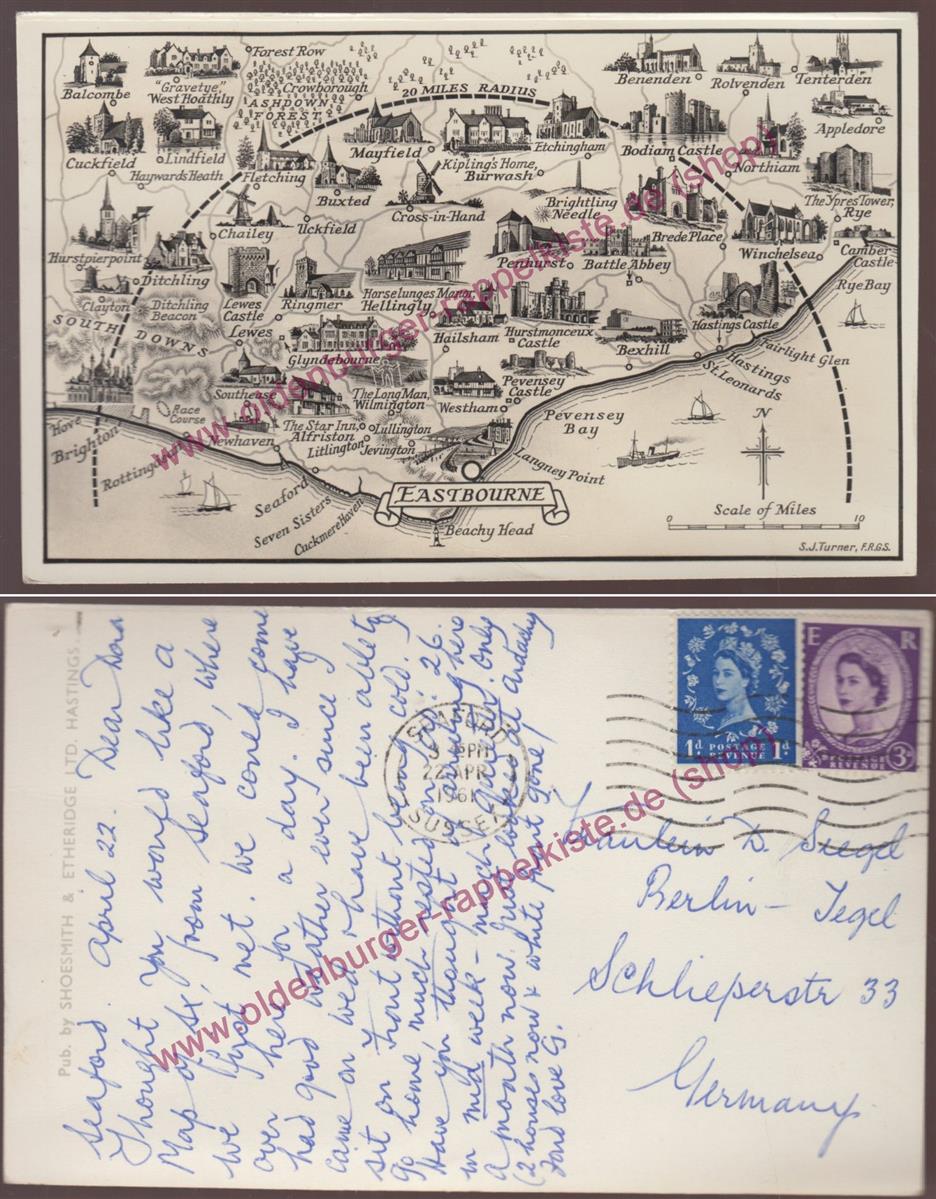 Balcombe
"Gravetye,"
West Hoathly
Forest Row
Crowborough
ASHDOWN
FOREST
20 MILES RADIUS
Benenden
Rolvenden
Tenterden
Cuckfield
Lindfield
Haywards Heath
Fletching
Buxted
Mayfield
Kipling's Home,
Burwash
Etchingham
Bodiam Castle
Northiam
Appledore
The Ypres Tower,
Rye
Hurstpierpoint
Ditchling
Chailey
Uckfield
Cross-in-Hand
Brightling
Needle
Brede Place
Winchelsea
Camber
Castle
Rye Bay
Clayton
Ditchling
Beacon
SOUTH
DOWNS
Lewes
Castle
Lewes
Ringmer
Horselunges Manor,
Hellingly
Penhurst
Battle Abbey
Hailsham
Hurstmonceux
Castle
Bexhill
Hastings Castle
Fairlight Glen
Hastings
St. Leonards
Glyndebourne
Southease
The Long Man,
Wilmington
Pevensey
Castle
Westham
Pevensey
Bay
Hove
Brighton
Race
Course
Newhaven
The Star Inn,
Alfriston
Lullington
Litlington
Jevington
Langney Point
Seaford
Seven Sisters
Cuckmere Haven
EASTBOURNE
Beachy Head
N
Scale of Miles
0
10
S.J. Turner, F.R.G.S.
www.oldenburger-rappelkiste.de (shop)
Pub. by SHOESMITH & ETHERIDGE LTD. HASTINGS
Seaford. April 22. Dear Dora
Thought you would like a
Map of Sx, from Seaford, where
we first met. We coned come
over here for a day I have
had good weather ever since I
came on wed & have been able to
sit on front without being cold.
Go home much rested on Wed: 26.
Have you thought of coming here
in mid week - much quieter. Only
a month now. Just looked at
(2 houses now & white paint gone)
Fond love G.
SEAFORD
PM
22 APR
1961
SUSSEX
1d POSTAGE REVENUE 1d
E R
POSTAGE REVENUE 3d
Fräulein D. Siegel
Berlin - Tegel
Schlieperstr 33
Germany
www.oldenburger-rappelkiste.de (shop)